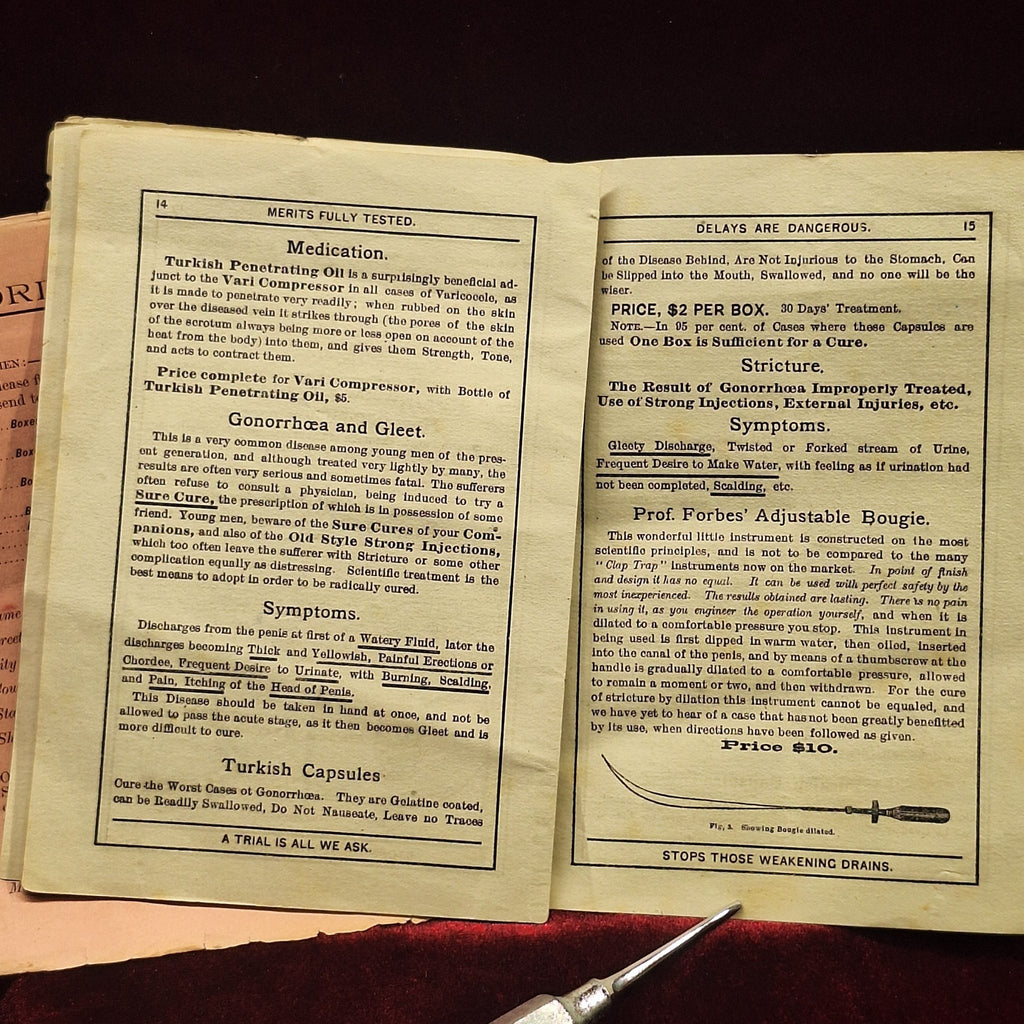 ORI
EN:—
ease f
send t
Boxe
Box
Bo
14
MERITS FULLY TESTED.
Medication.
Turkish Penetrating Oil is a surprisingly beneficial ad-
junct to the Vari Compressor in all cases of Varicocele, as
it is made to penetrate very readily; when rubbed on the skin
over the diseased vein it strikes through (the pores of the skin
of the scrotum always being more or less open on account of the
heat from the body) into them, and gives them Strength, Tone,
and acts to contract them.
Price complete for Vari Compressor, with Bottle of
Turkish Penetrating Oil, $5.
Gonorrhœa and Gleet.
This is a very common disease among young men of the pres-
ent generation, and although treated very lightly by many, the
results are often very serious and sometimes fatal. The sufferers
often refuse to consult a physician, being induced to try a
Sure Cure, the prescription of which is in possession of some
friend. Young men, beware of the Sure Cures of your Com-
panions, and also of the Old Style Strong Injections,
which too often leave the sufferer with Stricture or some other
complication equally as distressing. Scientific treatment is the
best means to adopt in order to be radically cured.
Symptoms.
Discharges from the penis at first of a Watery Fluid, later the
discharges becoming Thick and Yellowish, Painful Erections or
Chordee, Frequent Desire to Urinate, with Burning, Scalding,
and Pain, Itching of the Head of Penis.
This Disease should be taken in hand at once, and not be
allowed to pass the acute stage, as it then becomes Gleet and is
more difficult to cure.
Turkish Capsules
Cure the Worst Cases of Gonorrhœa. They are Gelatine coated,
can be Readily Swallowed, Do Not Nauseate, Leave no Traces
A TRIAL IS ALL WE ASK.
DELAYS ARE DANGEROUS.
15
of the Disease Behind, Are Not Injurious to the Stomach, Can
be Slipped into the Mouth, Swallowed, and no one will be the
wiser.
PRICE, $2 PER BOX. 30 Days' Treatment.
NOTE.—In 95 per cent. of Cases where these Capsules are
used One Box is Sufficient for a Cure.
Stricture.
The Result of Gonorrhœa Improperly Treated,
Use of Strong Injections, External Injuries, etc.
Symptoms.
Gleety Discharge, Twisted or Forked stream of Urine,
Frequent Desire to Make Water, with feeling as if urination had
not been completed, Scalding, etc.
Prof. Forbes' Adjustable Bougie.
This wonderful little instrument is constructed on the most
scientific principles, and is not to be compared to the many
"Clap Trap" instruments now on the market. In point of finish
and design it has no equal. It can be used with perfect safety by the
most inexperienced. The results obtained are lasting. There is no pain
in using it, as you engineer the operation yourself, and when it is
dilated to a comfortable pressure you stop. This instrument in
being used is first dipped in warm water, then oiled, inserted
into the canal of the penis, and by means of a thumbscrew at the
handle is gradually dilated to a comfortable pressure, allowed
to remain a moment or two, and then withdrawn. For the cure
of stricture by dilation this instrument cannot be equaled, and
we have yet to hear of a case that has not been greatly benefitted
by its use, when directions have been followed as given.
Price $10.
Fig. 3. Showing Bougie dilated.
STOPS THOSE WEAKENING DRAINS.